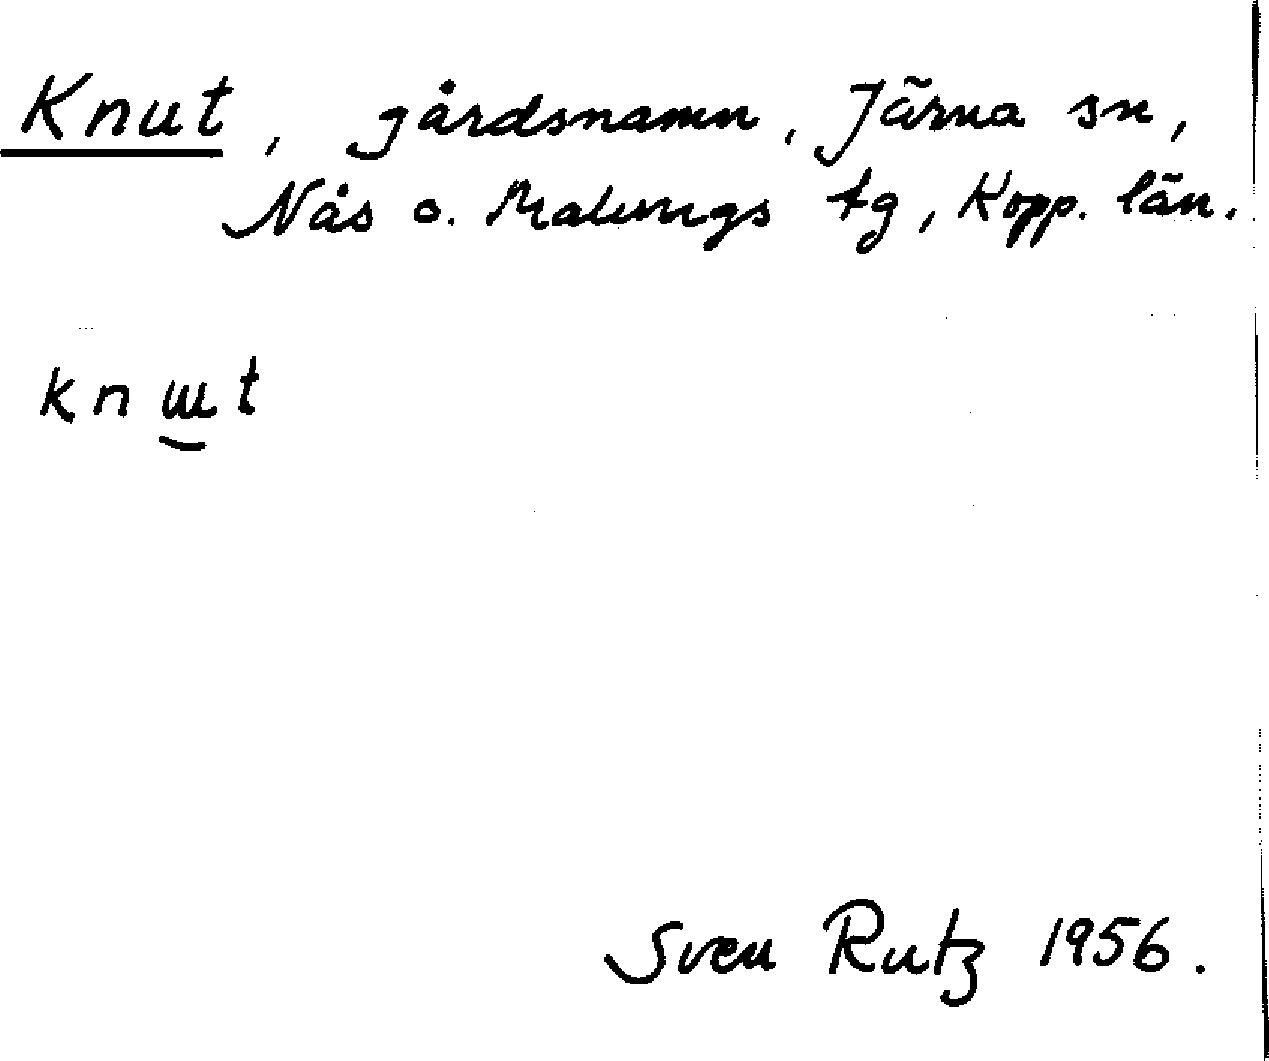 Knut, gårdsnamn, Järna sn,
Nås o. Malungs tg, Kopp. län.
knɯ̮t
Sven Rutz 1956.